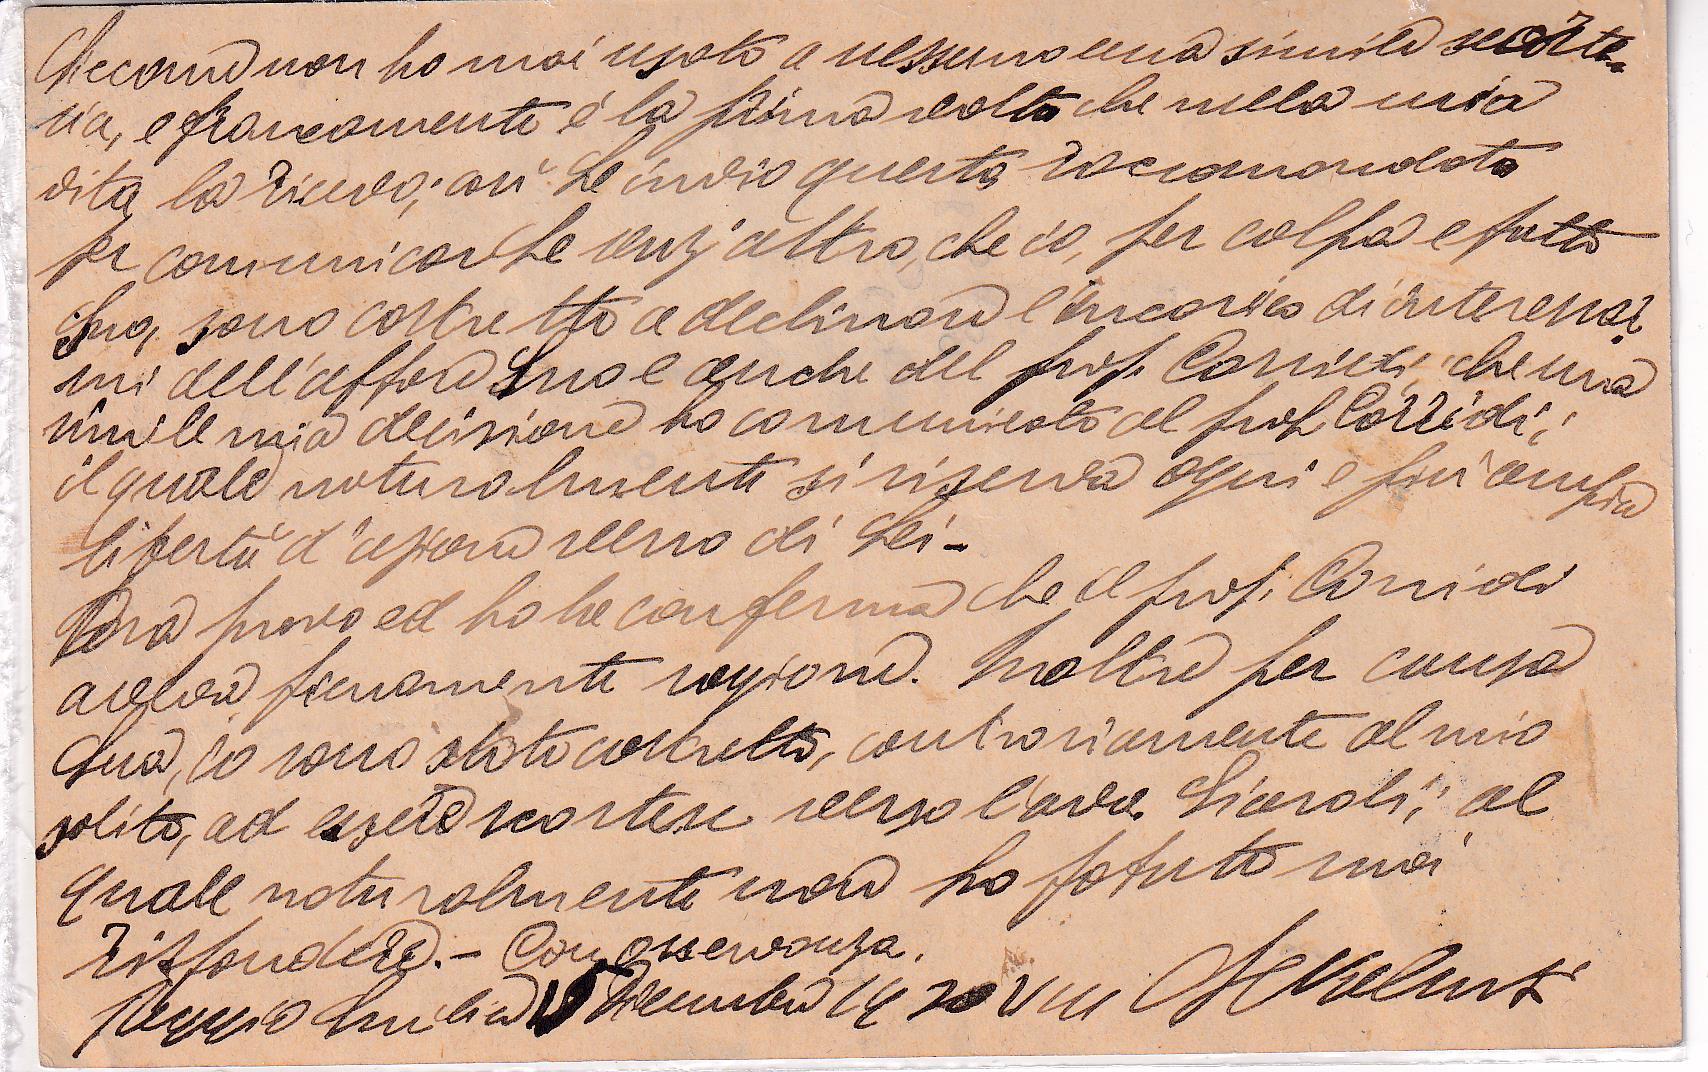 Siccome non ho mai usato a nessuno una simile scorte-
sia, e francamente è la prima volta che nella mia
vita la ricevo; così Le invio questa raccomandata
per comunicarLe senz'altro, che io, per colpa e fatto
Suo, sono costretto a declinare l'incarico di interessar
mi dell'affare Suo e anche del prof. Corridi; che una
simile mia decisione ho comunicato al prof. Corridi;
il quale naturalmente si riserva ogni e più ampia
libertà d'azione verso di Lei -
Ora provo ed ho la conferma che il prof. Corridi
aveva pienamente ragione. Inoltre per causa
Sua, io sono stato costretto, contrariamente al mio
solito, ad essere scortese verso l'avv. ; al
quale naturalmente non ho potuto mai
rispondere. - Con osservanza.
Reggio Emilia Dicembre VIII